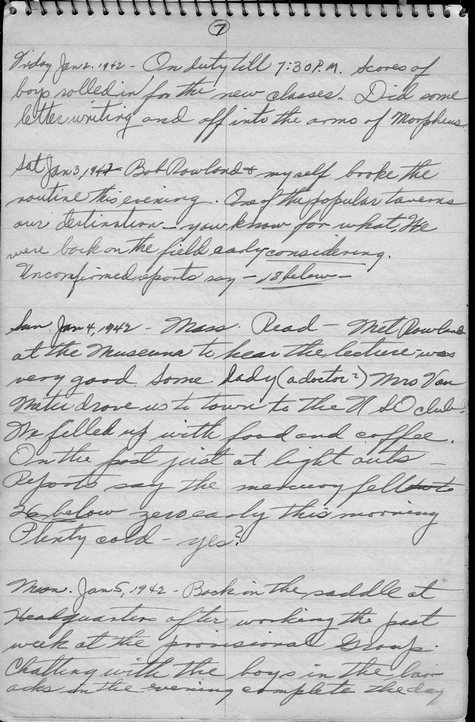 7
Friday Jan 2. 1942 - On duty till 7:30 P.M. Scores of
boys rolled in for the new classes. Did some
letter writing and off into the arms of Morpheus
Sat Jan 3, 1942 - Bob Rowland & myself broke the
routine this evening. One of the popular taverns
our destination - you know for what. We
were back on the field early considering.
Unconfirmed reports say - 18 below -
Sun Jan 4, 1942 - Mass. Read - Met Rowland
at the Museum to hear the lecture; was
very good some lady (a doctor?) Mrs Van
Meter drove us to town to the U S O club.
We filled up with food and coffee.
On the post just at light outs -
Reports say the mercury fell
26 below zero early this morning
Plenty cold - yes?
Mon. Jan 5, 1942 - Back in the saddle at
Headquarters after working the past
week at the provisional Group.
Chatting with the boys in the barr
acks in the evening complete the day